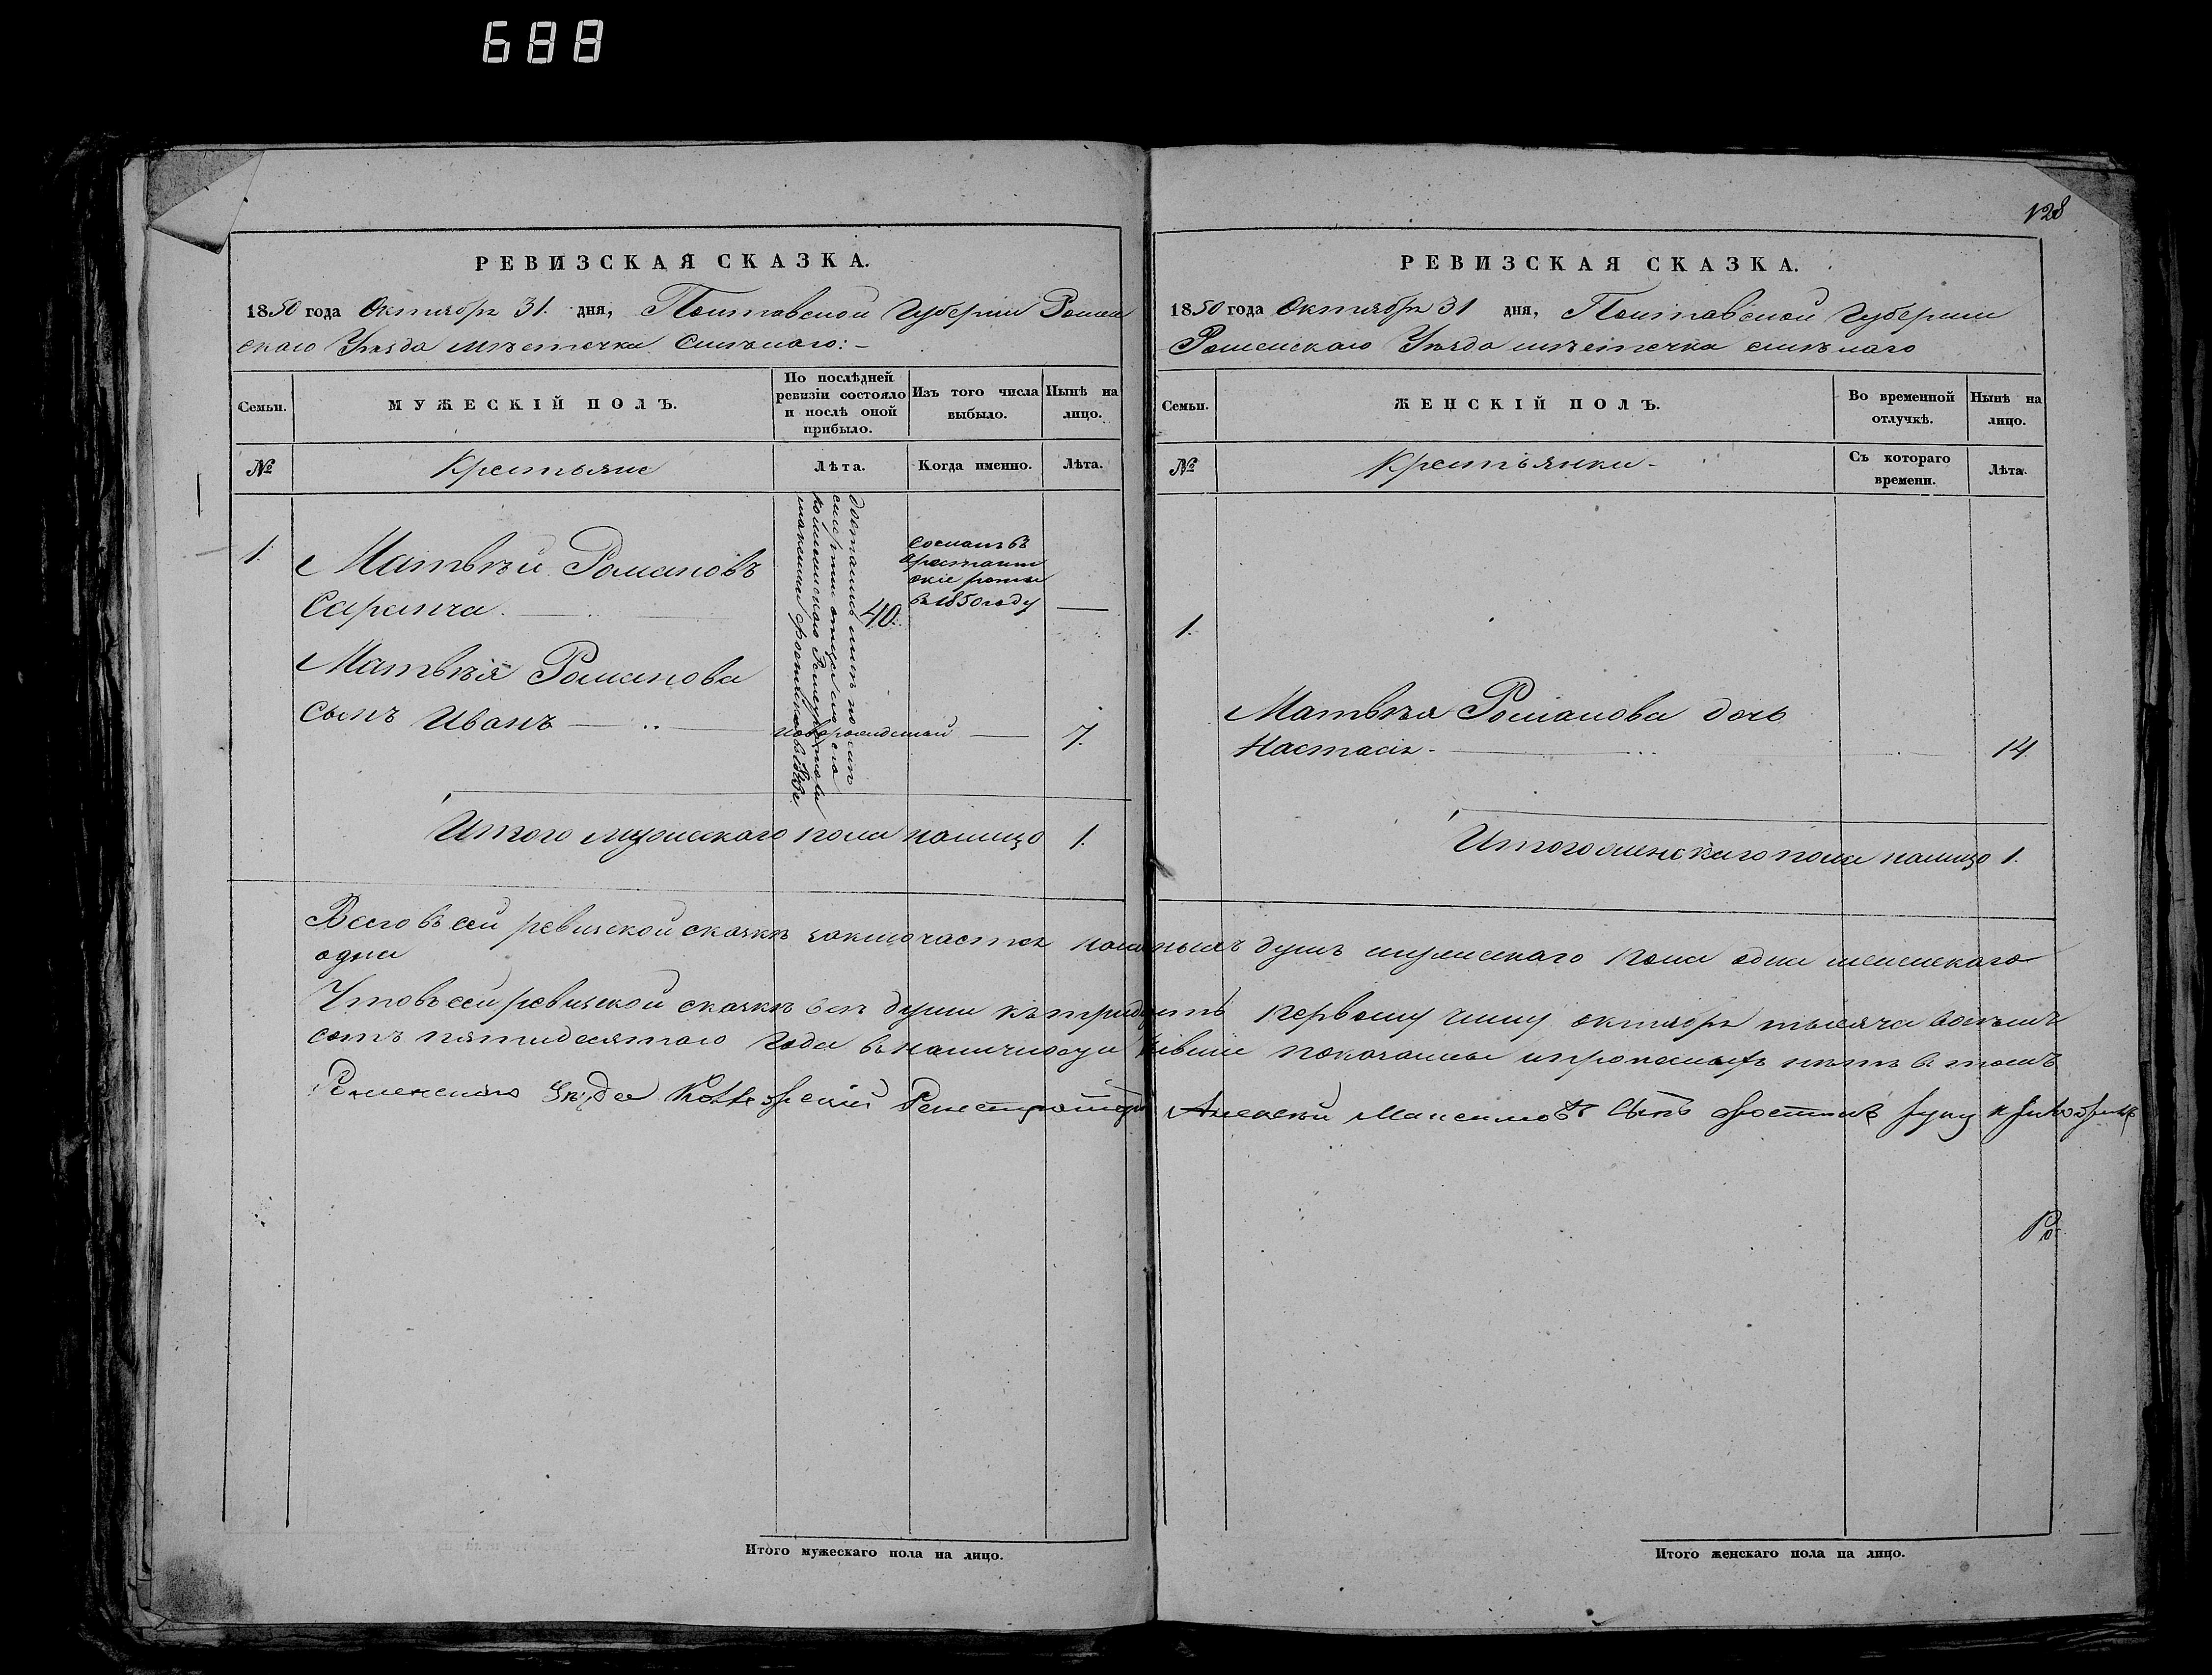 688
128
РЕВИЗСКАЯ СКАЗКА.
1850 года Октября 31. дня, Полтавской Губерніи Ромен
скаго Уѣзда мѣстечка Смѣлаго:-
Семьи.
МУЖЕСКІЙ ПОЛЪ.
По послѣдней
ревизіи состояло
и послѣ оной
прибыло.
Изъ того числа
выбыло.
Нынѣ на
лицо.
№
Крестьяне
Лѣта.
Когда именно.
Лѣта.
1.
Матвѣй Романовъ
Саранча.
40.
сосланъ въ
арестант
скіе роты
въ 1850 году
Достался мнѣ по
смерти отца
коллежскаго Регистратора
Матвѣя Романова
сынъ Иванъ
новорожденный
7.
Итого мужескаго пола налицо 1.
РЕВИЗСКАЯ СКАЗКА.
1850 года Октября 31 дня, Полтавской Губерніи
Роменскаго Уѣзда мѣстечка смѣлаго
Семьи.
ЖЕНСКІЙ ПОЛЪ.
Во временной
отлучкѣ.
Нынѣ на
лицо.
№
Крестьянки-
Съ котораго
времени.
Лѣта.
1.
Матвѣя Романова дочь
Настасія.
14.
Итого женскаго пола налицо 1.
Всего въ сей ревизской сказкѣ заключается наличныхъ душъ мужескаго пола одна женскаго
одна
Что въ сей ревизской сказкѣ всѣ души къ тридцать первому числу октября тысяча восемь
сотъ пятидесятаго года въ наличности показаны и прописныхъ нѣтъ въ томъ
Роменскаго Уѣзда Регистраторъ Алексѣй Максимовъ Сынъ руку приложилъ
Итого мужескаго пола на лицо.
Итого женскаго пола на лицо.